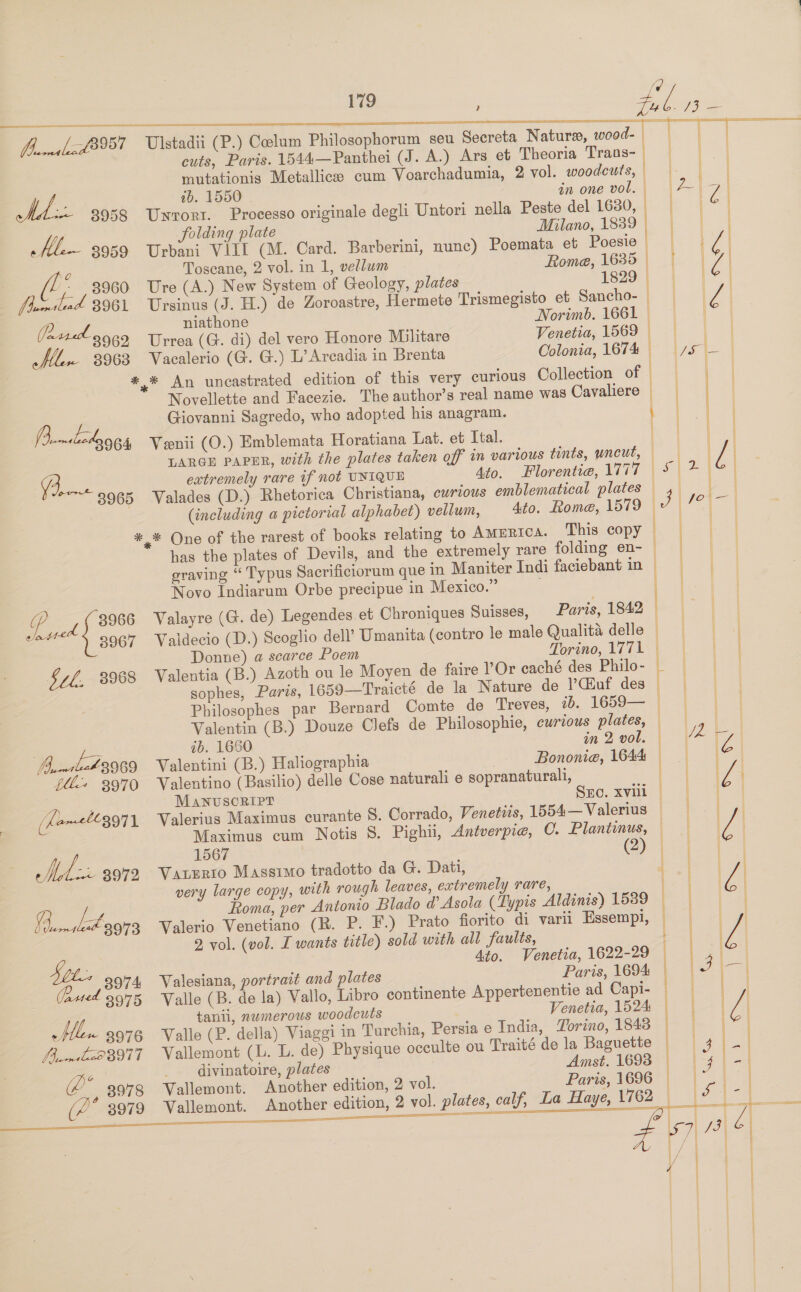 179
Bumstead 3957 Ulstadii (P.) Cœlum Philosophorum seu Secreta Naturæ, wood-
cuts, Paris. 1544—Panthei (J. A.) Ars et Theoria Trans-
mutationis Metallicæ cum Voarchadumia, 2 vol. woodcuts,
ib. 1550 in one vol.
3958 Untori. Processo originale degli Untori nella Peste del 1630,
folding plate Milano, 1839
Allen 3959 Urbani VIII (M. Card. Barberini, nunc) Poemata et Poesie
Toscane, 2 vol. in 1, vellum Romæ, 1635
3960 Ure (A.) New System of Geology, plates 1829
Bumstead 3961 Ursinus (J. H.) de Zoroastre, Hermete Trismegisto et Sancho-
niathone Norimb. 1661
Passed 3962 Urrea (G. di) del vero Honore Militare Venetia, 1569
Allen 3963 Vacalerio (G. G.) L'Arcadia in Brenta Colonia, 1674 15 —
*** An uncastrated edition of this very curious Collection of
Novellette and Facezie. The author's real name was Cavaliere
Giovanni Sagredo, who adopted his anagram.
Bumstead 3964 Vænii (O.) Emblemata Horatiana Lat. et Ital.
LARGE PAPER, with the plates taken off in various tints, uncut,
extremely rare if not UNIQUE 4to. Florentiæ, 1777 5 2 6
3965 Valades (D.) Rhetorica Christiana, curious emblematical plates
(including a pictorial alphabet) vellum, 4to. Romæ, 1579 3 10 —
*** One of the rarest of books relating to AMERICA. This copy
has the plates of Devils, and the extremely rare folding en-
graving “Typus Sacrificiorum que in Maniter Indi faciebant in
Novo Indiarum Orbe precipue in Mexico.”
Passed { 3966 Valayre (G. de) Legendes et Chroniques Suisses, Paris, 1842
3967 Valdecio (D.) Scoglio dell' Umanita (contro le male Qualità delle
Donne) a scarce Poem Torino, 1771
3968 Valentia (B.) Azoth ou le Moyen de faire l'Or caché des Philo-
sophes, Paris, 1659—Traicté de la Nature de l'Œuf des
Philosophes par Bernard Comte de Treves, ib. 1659—
Valentin (B.) Douze Clefs de Philosophie, curious plates,
ib. 1660 in 2 vol. 12 —
Bumstead 3969 Valentini (B.) Haliographia Bononiæ, 1644 6
3970 Valentino (Basilio) delle Cose naturali e sopranaturali,
MANUSCRIPT SEC. XVIII 6
3971 Valerius Maximus curante S. Corrado, Venetiis, 1554—Valerius
Maximus cum Notis S. Pighii, Antverpiæ, C. Plantinus,
1567 (2) 6
3972 VALERIO MASSIMO tradotto da G. Dati,
very large copy, with rough leaves, extremely rare,
Roma, per Antonio Blado d'Asola (Typis Aldinis) 1539 6
Bumstead 3973 Valerio Venetiano (R. P. F.) Prato fiorito di varii Essempi,
2 vol. (vol. I wants title) sold with all faults,
4to. Venetia, 1622-29 6
3974 Valesiana, portrait and plates Paris, 1694 3 —
Passed 3975 Valle (B. de la) Vallo, Libro continente Appertenentie ad Capi-
tanii, numerous woodcuts Venetia, 1524
Allen 3976 Valle (P. della) Viaggi in Turchia, Persia e India, Torino, 1843 6
Bumstead 3977 Vallemont (L. L. de) Physique occulte ou Traité de la Baguette
divinatoire, plates Amst. 1693 3 —
3978 Vallemont. Another edition, 2 vol. Paris, 1696 3 —
3979 Vallemont. Another edition, 2 vol. plates, calf, La Haye, 1762 5 —
£ 57 13 6